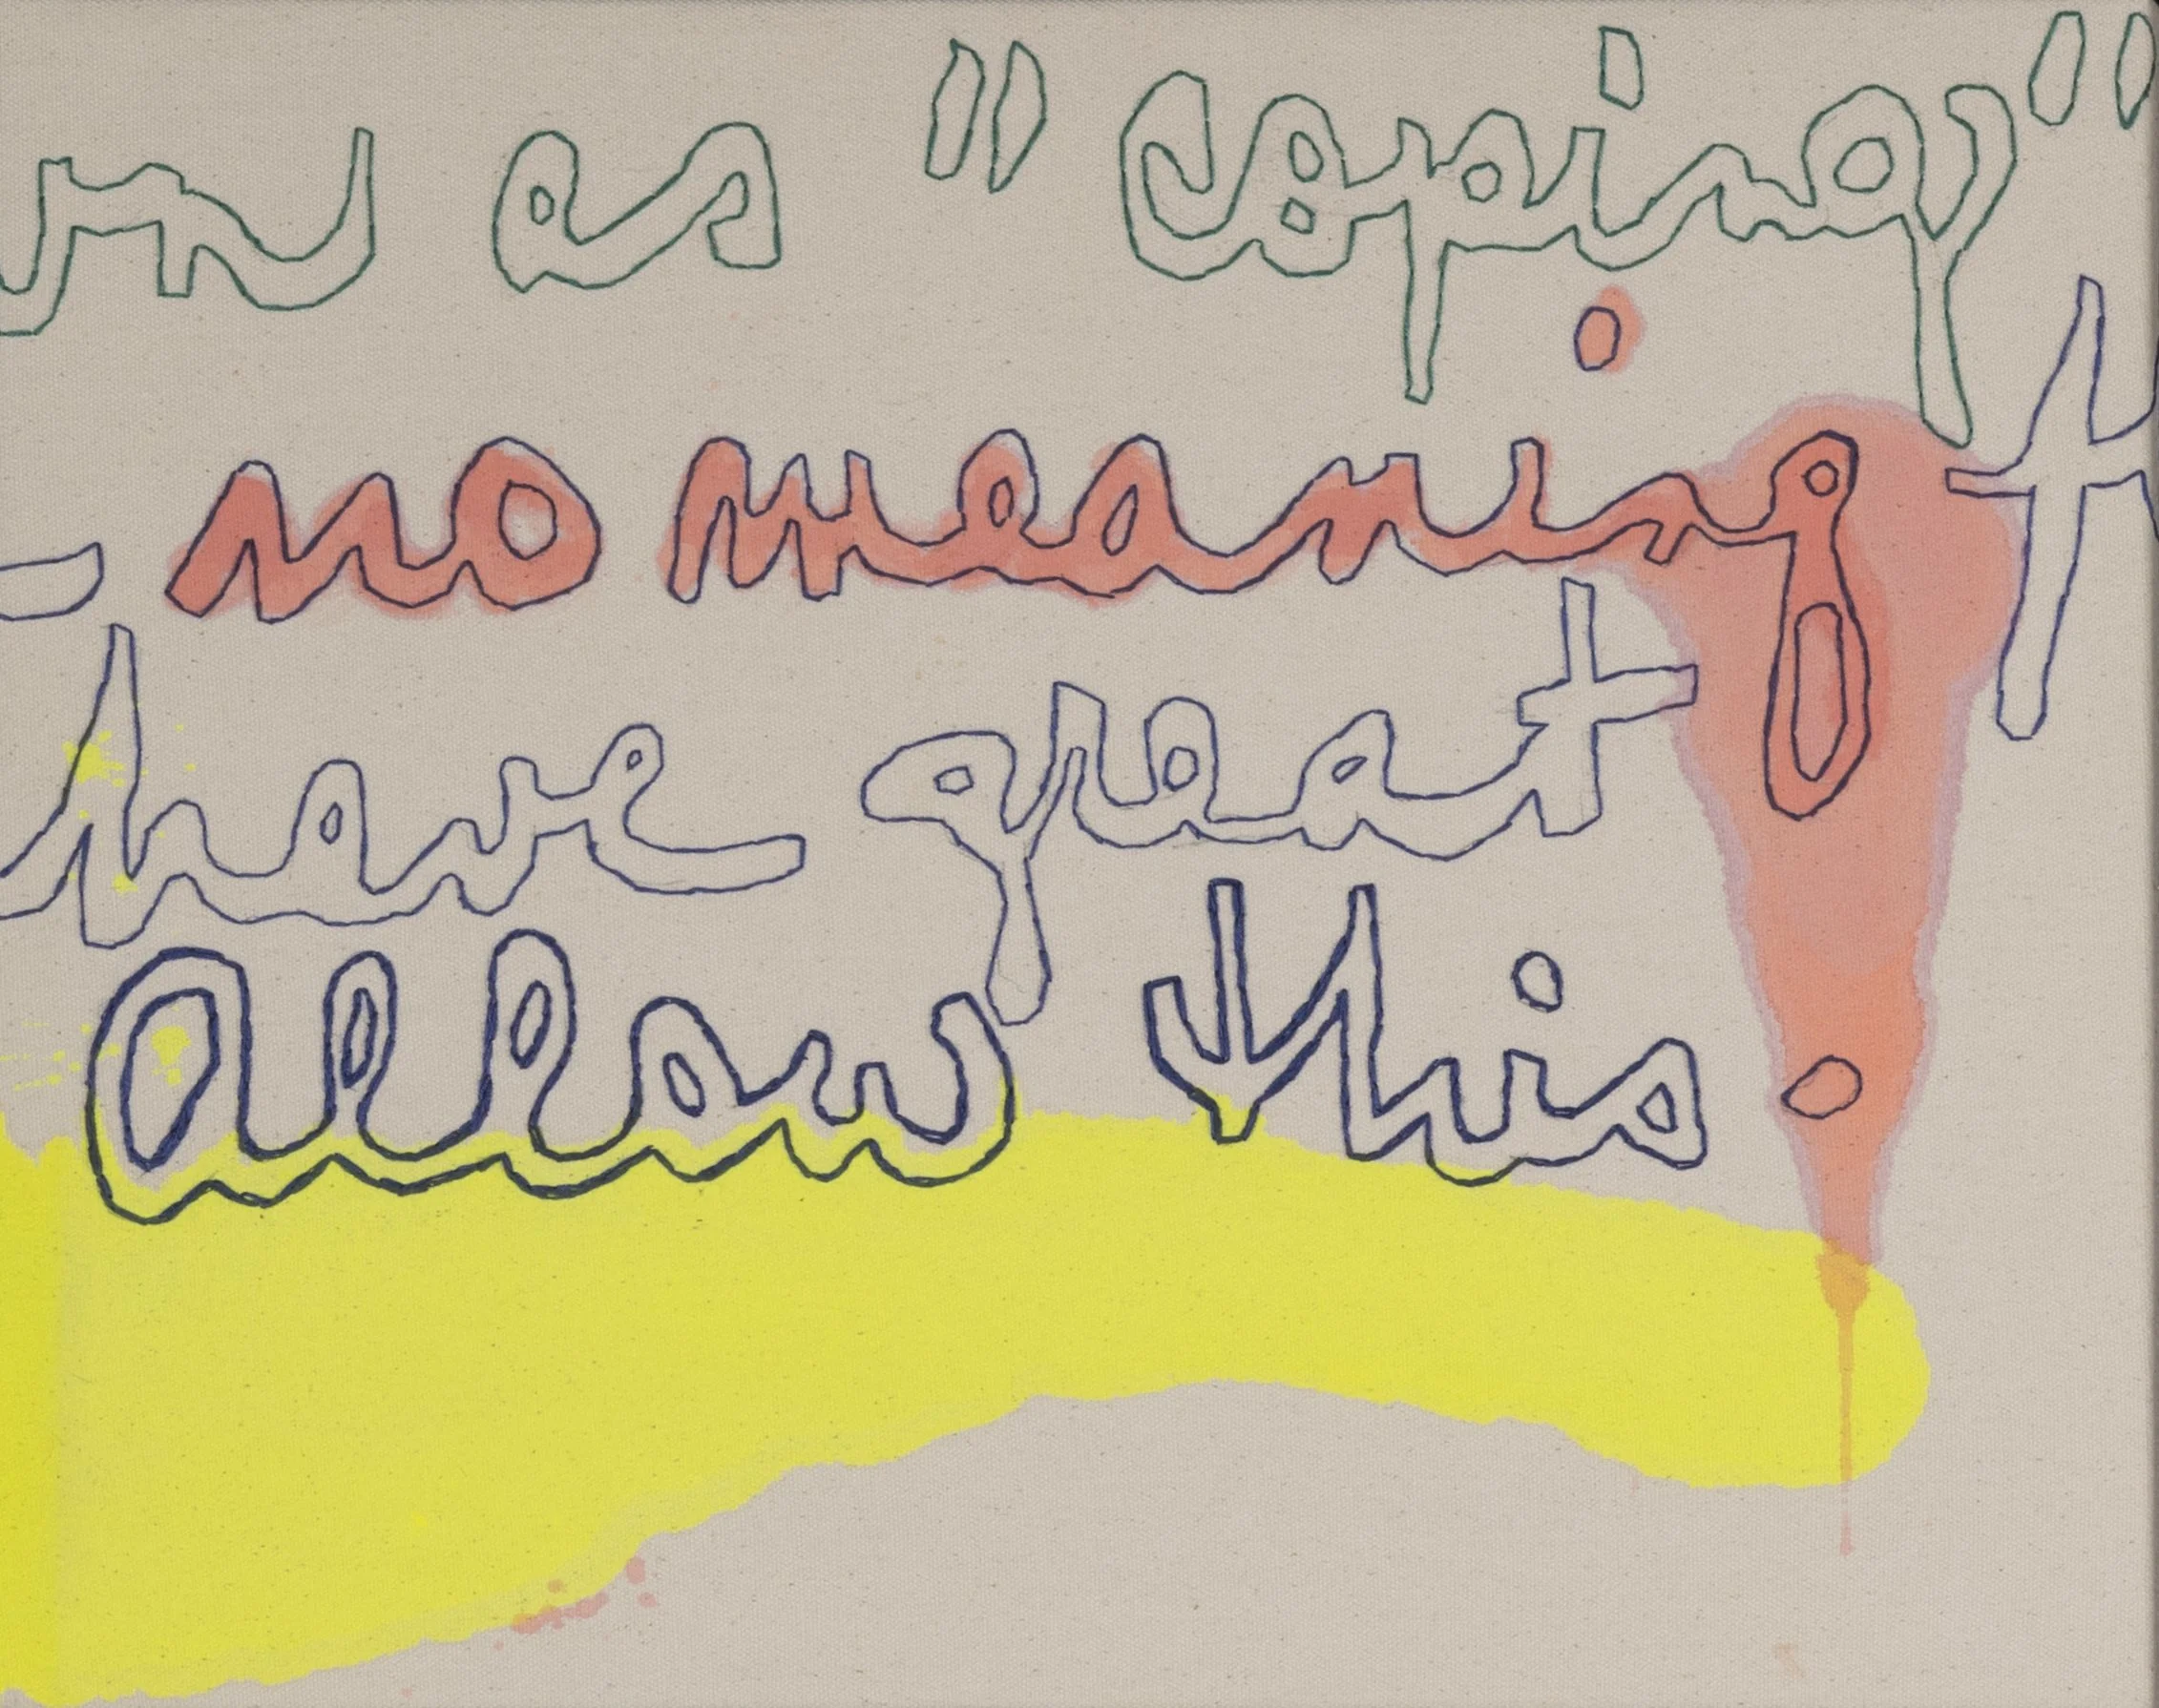 as "coping"
no meaning
have great
allow this.